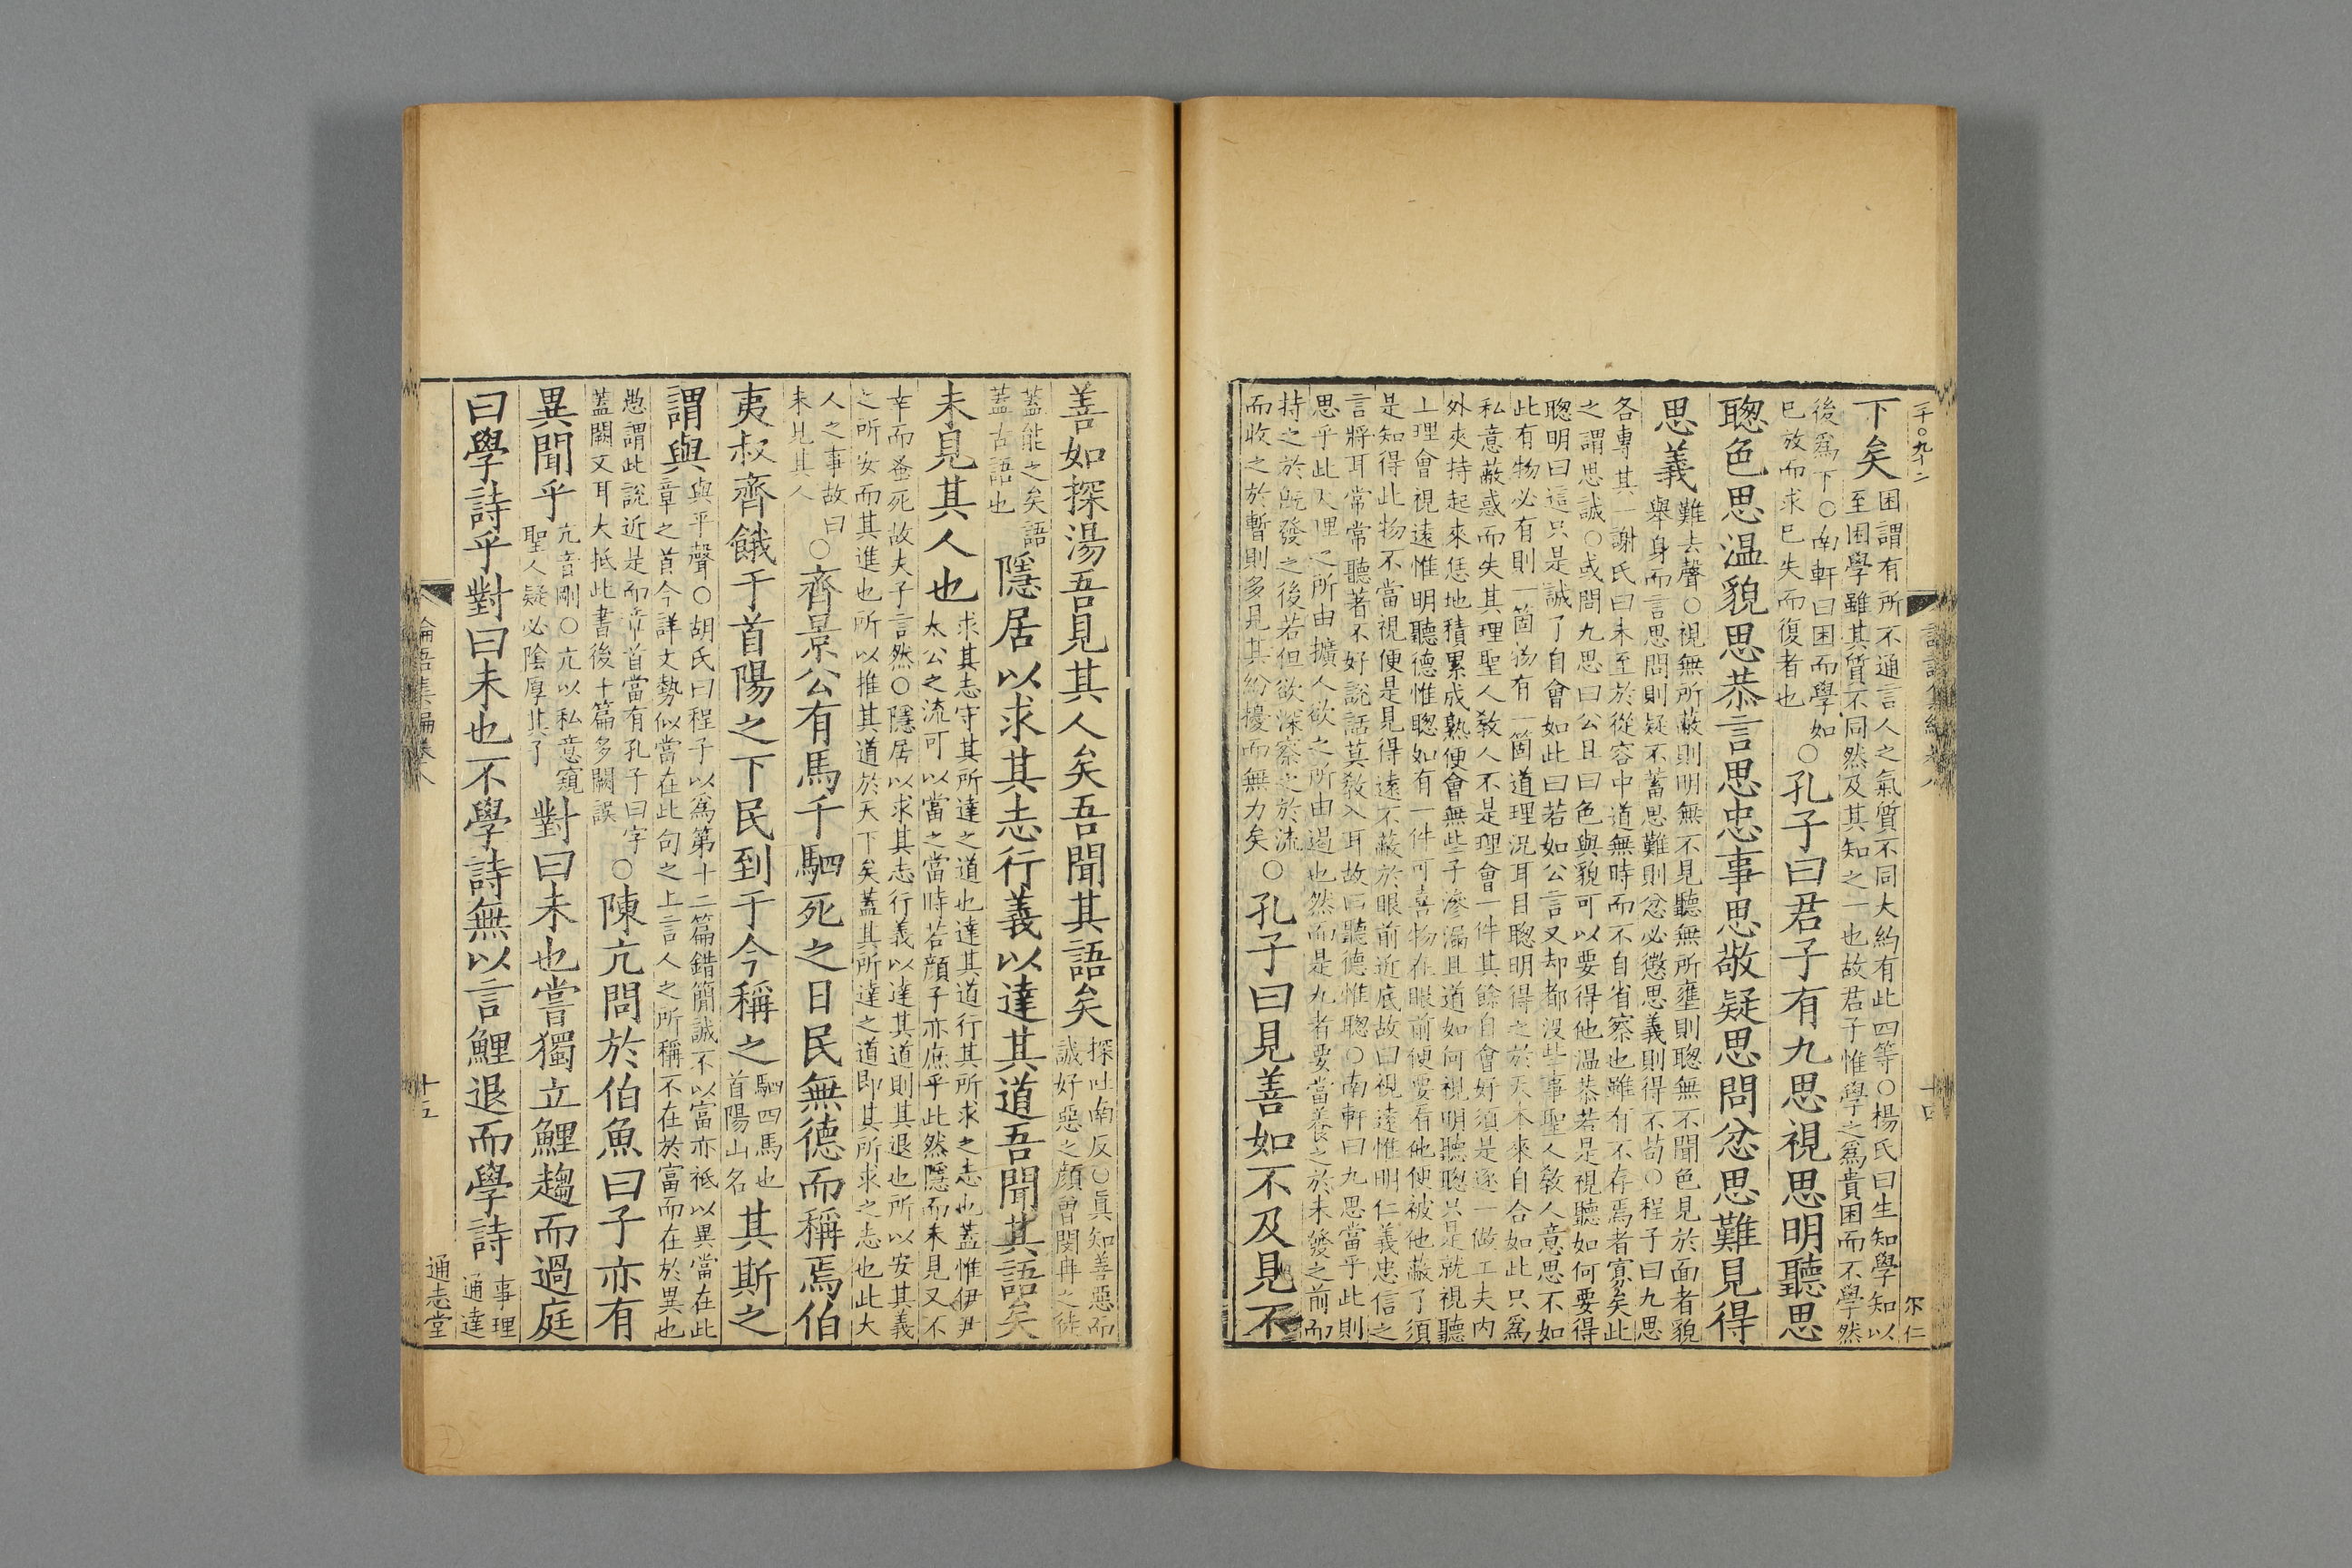 下矣困謂有所不通言人之氣質不同大約有此四等○楊氏曰生知學知以
至困學雖其質不同然及其知之一也故君子惟學之爲貴困而不學然
後爲下○南軒曰困而學如
已放而求已失而復者也
○孔子曰君子有九思視思明聽思
聰色思温貌思恭言思忠事思敬疑思問忿思難見得
思義難去聲○視無所蔽則明無不見聽無所壅則聰無不聞色見於面者貌
舉身而言思問則疑不蓄思難則忿必懲思義則得不苟○程子曰九思
各專其一謝氏曰未至於從容中道無時而不自省察也雖有不存焉者寡矣此
之謂思誠○或問九思曰公且曰色與貌可以要得他温恭若是視聽如何要得
聰明曰這只是誠了自會如此曰若如公言又却都没些事聖人教人意思不如
此有物必有則一箇物有一箇道理況耳目聰明得之於天本來自合如此只爲
私意蔽惑而失其理聖人教人不是理會一件其餘自會好須是逐一做工夫内
外夾持起來恁地積累成熟便會無些子滲漏且道如何視明聽聰只是就視聽
上理會視遠惟明聽德惟聰如有一件可喜物在眼前便要看他便被他蔽了須
是知得此物不當視便是見得遠不蔽於眼前近底故曰視遠惟明仁義忠信之
言將耳常常聽著不好說話莫教入耳故曰聽德惟聰○南軒曰九思當乎此則
思乎此天理之所由擴人欲之所由遏也然而是九者要當養之於未發之前而
持之於旣發之後若但欲深察之於流
而收之於暫則多見其紛擾而無力矣
○孔子曰見善如不及見不
善如探湯吾見其人矣吾聞其語矣探吐南反○眞知善惡而
誠好惡之顔曾閔冉之徒
蓋能之矣語
蓋古語也
隱居以求其志行義以達其道吾聞其語矣
未見其人也求其志守其所達之道也達其道行其所求之志也蓋惟伊尹
太公之流可以當之當時若顔子亦庶乎此然隱而未見又不
幸而蚤死故夫子言然○隱居以求其志行義以達其道則其退也所以安其義
之所安而其進也所以推其道於天下矣蓋其所達之道即其所求之志也此大
人之事故曰
未見其人
○齊景公有馬千駟死之日民無德而稱焉伯
夷叔齊餓于首陽之下民到于今稱之駟四馬也
首陽山名
其斯之
謂與與平聲○胡氏曰程子以爲第十二篇錯簡誠不以富亦祗以異當在此
章之首今詳文勢似當在此句之上言人之所稱不在於富而在於異也
愚謂此說近是而章首當有孔子曰字
蓋闕文耳大抵此書後十篇多闕誤
○陳亢問於伯魚曰子亦有
異聞乎亢音剛○亢以私意窺
聖人疑必陰厚其子
對曰未也嘗獨立鯉趨而過庭
曰學詩乎對曰未也不學詩無以言鯉退而學詩事理
通達
論語集編卷八
十五
通志堂